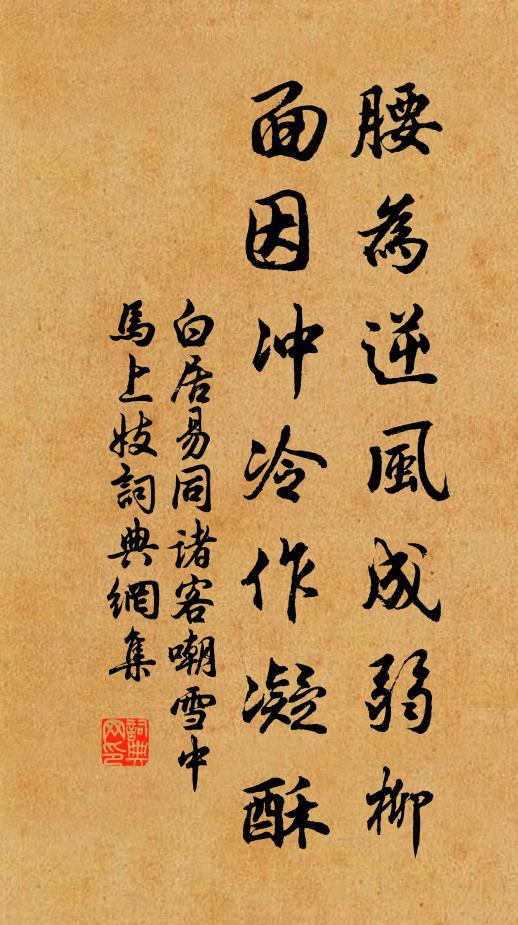 腰為逆風成弱柳
面因冲冷作凝酥
白居易同諸客嘲雪中
馬上妓詞典網集
詞典
网印